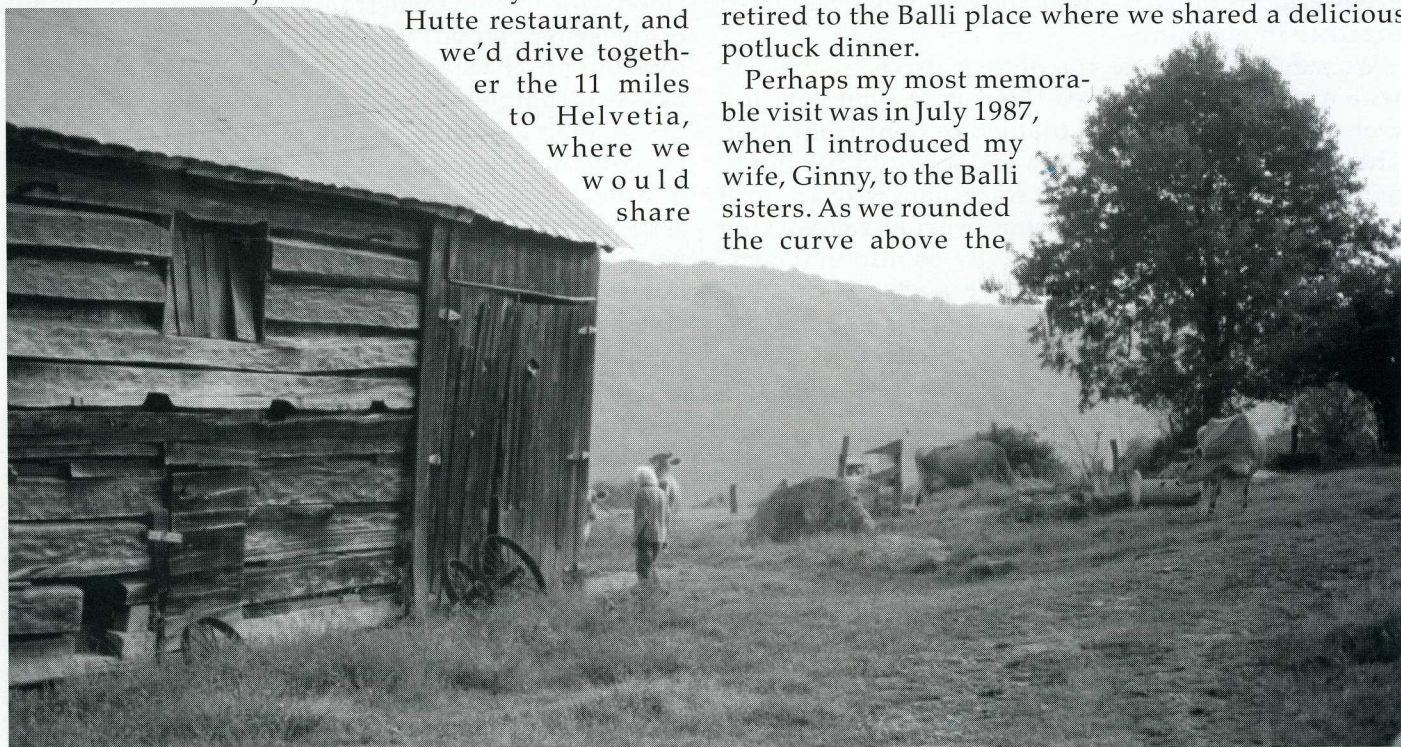 Hutte restaurant, and
we'd drive togeth-
er the 11 miles
to Helvetia,
where we
would
share
retired to the Balli place where we shared a delicious
potluck dinner.
Perhaps my most memora-
ble visit was in July 1987,
when I introduced my
wife, Ginny, to the Balli
sisters. As we rounded
the curve above the